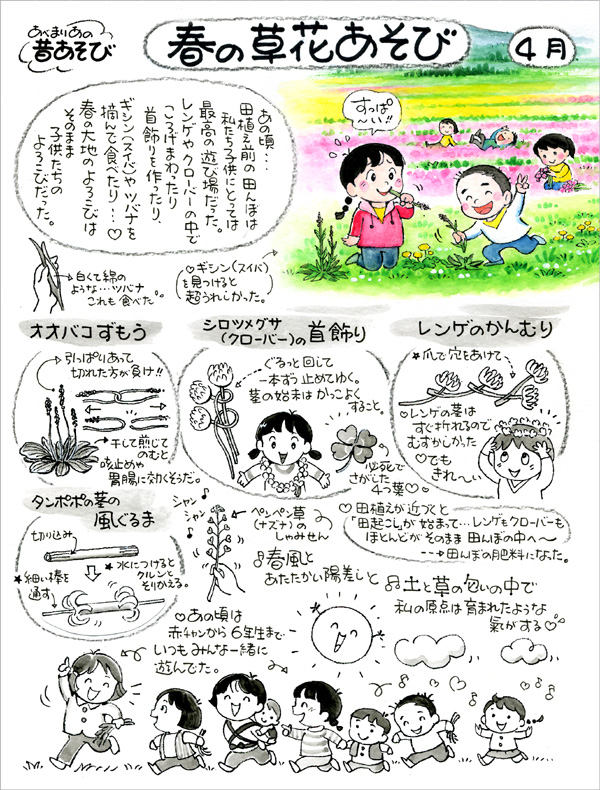 あべまりあの
昔あそび
春の草花あそび
4月
あの頃…
田植え前の田んぼは
私たち子供にとっては
最高の遊び場だった。
レンゲやクローバーの中で
ころげまわったり
首飾りを作ったり、
ギシン(スイバ)やツバナを
摘んで食べたり…♡
春の大地のよろこびは
そのまま
子供たちの
よろこびだった。
すっぱ
〜い!!
白くて綿の
ような…ツバナ
これも食べた。
♡ギシン(スイバ)
を見つけると
超うれしかった。
オオバコずもう
引っぱりあって
切れた方が負け!!
干して煎じて
のむと
咳止めや
胃腸に効くそうだ。
シロツメグサ
(クローバー)の首飾り
ぐるっと回して
一本ずつ止めてゆく。
茎の始末はかっこよく
すること。
必死で
さがした
4つ葉♡
レンゲのかんむり
★爪で穴をあけて
♡レンゲの茎は
すぐ折れるので
むずかしかった
♡でも
きれ〜い
タンポポの茎の
風ぐるま
切り込み
★水につけると
クルンと
そりかえる。
★細い棒を
通す
シャン
シャン
ペンペン草
(ナズナ)の
しゃみせん
♡田植えが近づくと
「田起こし」が始まって…レンゲもクローバーも
ほとんどがそのまま田んぼの中へ〜
田んぼの肥料になった。
♫春風と
あたたかい陽差しと
♫土と草の匂いの中で
私の原点は育まれたような
氣がする♡
♡あの頃は
赤チャンから6年生まで
いつもみんな一緒に
遊んでた。